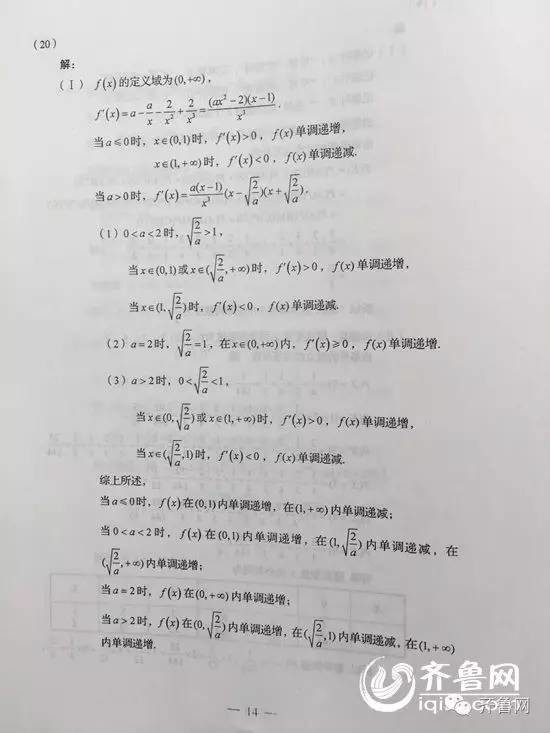 (20)
解：
(Ⅰ) f(x)的定义域为(0,+∞)，
f′(x)=a−a/x−2/x²+2/x³=(ax²−2)(x−1)/x³.
当a≤0时，x∈(0,1)时，f′(x)>0，f(x)单调递增，
x∈(1,+∞)时，f′(x)<0，f(x)单调递减.
当a>0时，f′(x)=a(x−1)/x³(x−√(2/a))(x+√(2/a)).
(1) 0<a<2时，√(2/a)>1，
当x∈(0,1)或x∈(√(2/a),+∞)时，f′(x)>0，f(x)单调递增，
当x∈(1,√(2/a))时，f′(x)<0，f(x)单调递减.
(2) a=2时，√(2/a)=1，在x∈(0,+∞)内，f′(x)≥0，f(x)单调递增.
(3) a>2时，0<√(2/a)<1，
当x∈(0,√(2/a))或x∈(1,+∞)时，f′(x)>0，f(x)单调递增，
当x∈(√(2/a),1)时，f′(x)<0，f(x)单调递减.
综上所述，
当a≤0时，f(x)在(0,1)内单调递增，在(1,+∞)内单调递减；
当0<a<2时，f(x)在(0,1)内单调递增，在(1,√(2/a))内单调递减，在
(√(2/a),+∞)内单调递增；
当a=2时，f(x)在(0,+∞)内单调递增；
当a>2时，f(x)在(0,√(2/a))内单调递增，在(√(2/a),1)内单调递减，在(1,+∞)
内单调递增.
— 14 —
齐鲁网
齐鲁网